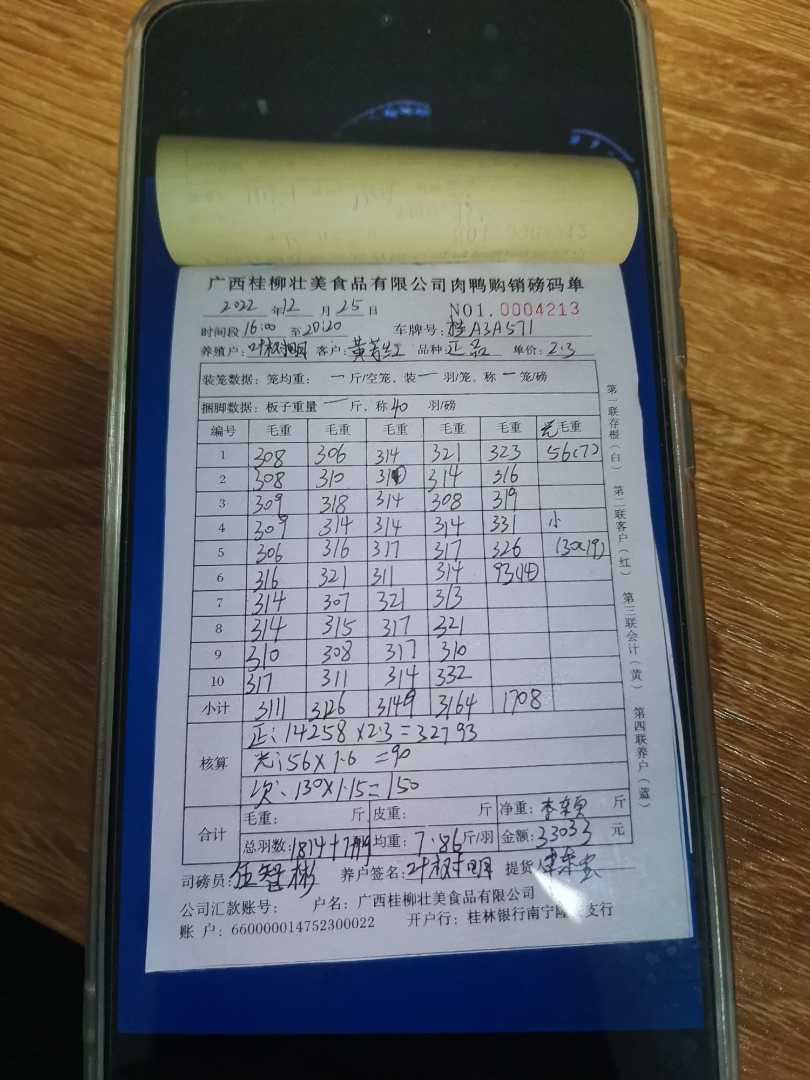 广西桂柳壮美食品有限公司肉鸭购销磅码单
2022年12月25日 NO1.0004213
时间段16:00至20:20 车牌号:桂A3A571
养殖户:叶权明 客户: 品种:正品 单价:2.3
装笼数据:笼均重:一斤/空笼、装一羽/笼、称一笼/磅
捆脚数据:板子重量一斤、称40羽/磅
编号 毛重 毛重 毛重 毛重 毛重 光毛重
1 308 306 314 321 323 56(7)
2 308 310 310 314 316
3 309 318 314 308 319
4 309 314 314 314 331 小
5 306 316 317 317 326 (130(19)
6 316 321 311 314 93(14)
7 314 307 321 313
8 314 315 317 321
9 310 308 317 310
10 317 311 314 332
小计 3111 3126 3149 3164 1708
核算 正:14258×2.3=32793
光:56×1.6=90
次:130×1.15=150
合计 毛重: 斤 皮重: 斤 净重: 斤
总羽数:1814+7 均重:7.86斤/羽 金额:33033元
司磅员:伍智彬 养户签名:叶权明 提货人
公司汇款账号: 户名:广西桂柳壮美食品有限公司
账户:660000014752300022 开户行:桂林银行南宁支行
第一联存根(白) 第二联客户(红) 第三联会计(黄) 第四联养户(蓝)